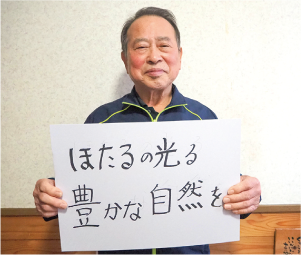 ほたるの光る
豊かな自然を